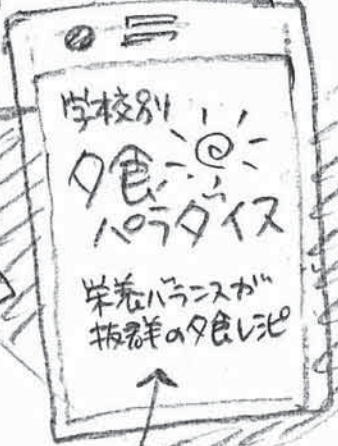 学校別
夕食
パラダイス
栄養バランスが
抜群の夕食レシピ